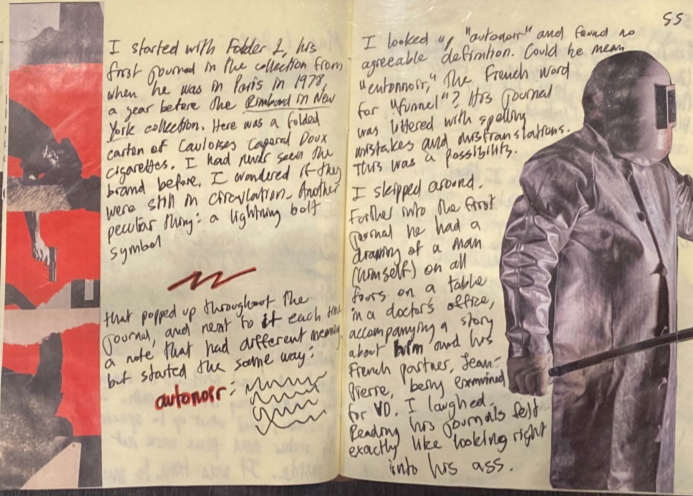 I started with Folder 1, his
first journal in the collection from
when he was in Paris in 1978,
a year before the Rimbaud in New
York collection. Here was a folded
carton of Gauloises Caporal Doux
cigarettes. I had never seen the
brand before. I wondered if they
were still in circulation. Another
peculiar thing: a lightning bolt
symbol
that popped up throughout the
journal, and next to it each time
a note that had different meaning
but started the same way:
autonoir:
55
I looked up "autonoir" and found no
agreeable definition. Could he mean
"entonnoir," the French word
for "funnel"? His journal
was littered with spelling
mistakes and mistranslations.
This was a possibility.
I skipped around.
Further into the first
journal he had a
drawing of a man
(himself) on all
fours on a table
in a doctor's office,
accompanying a story
about him and his
French partner, Jean-
Pierre, being examined
for VD. I laughed.
Reading his journals felt
exactly like looking right
into his ass.